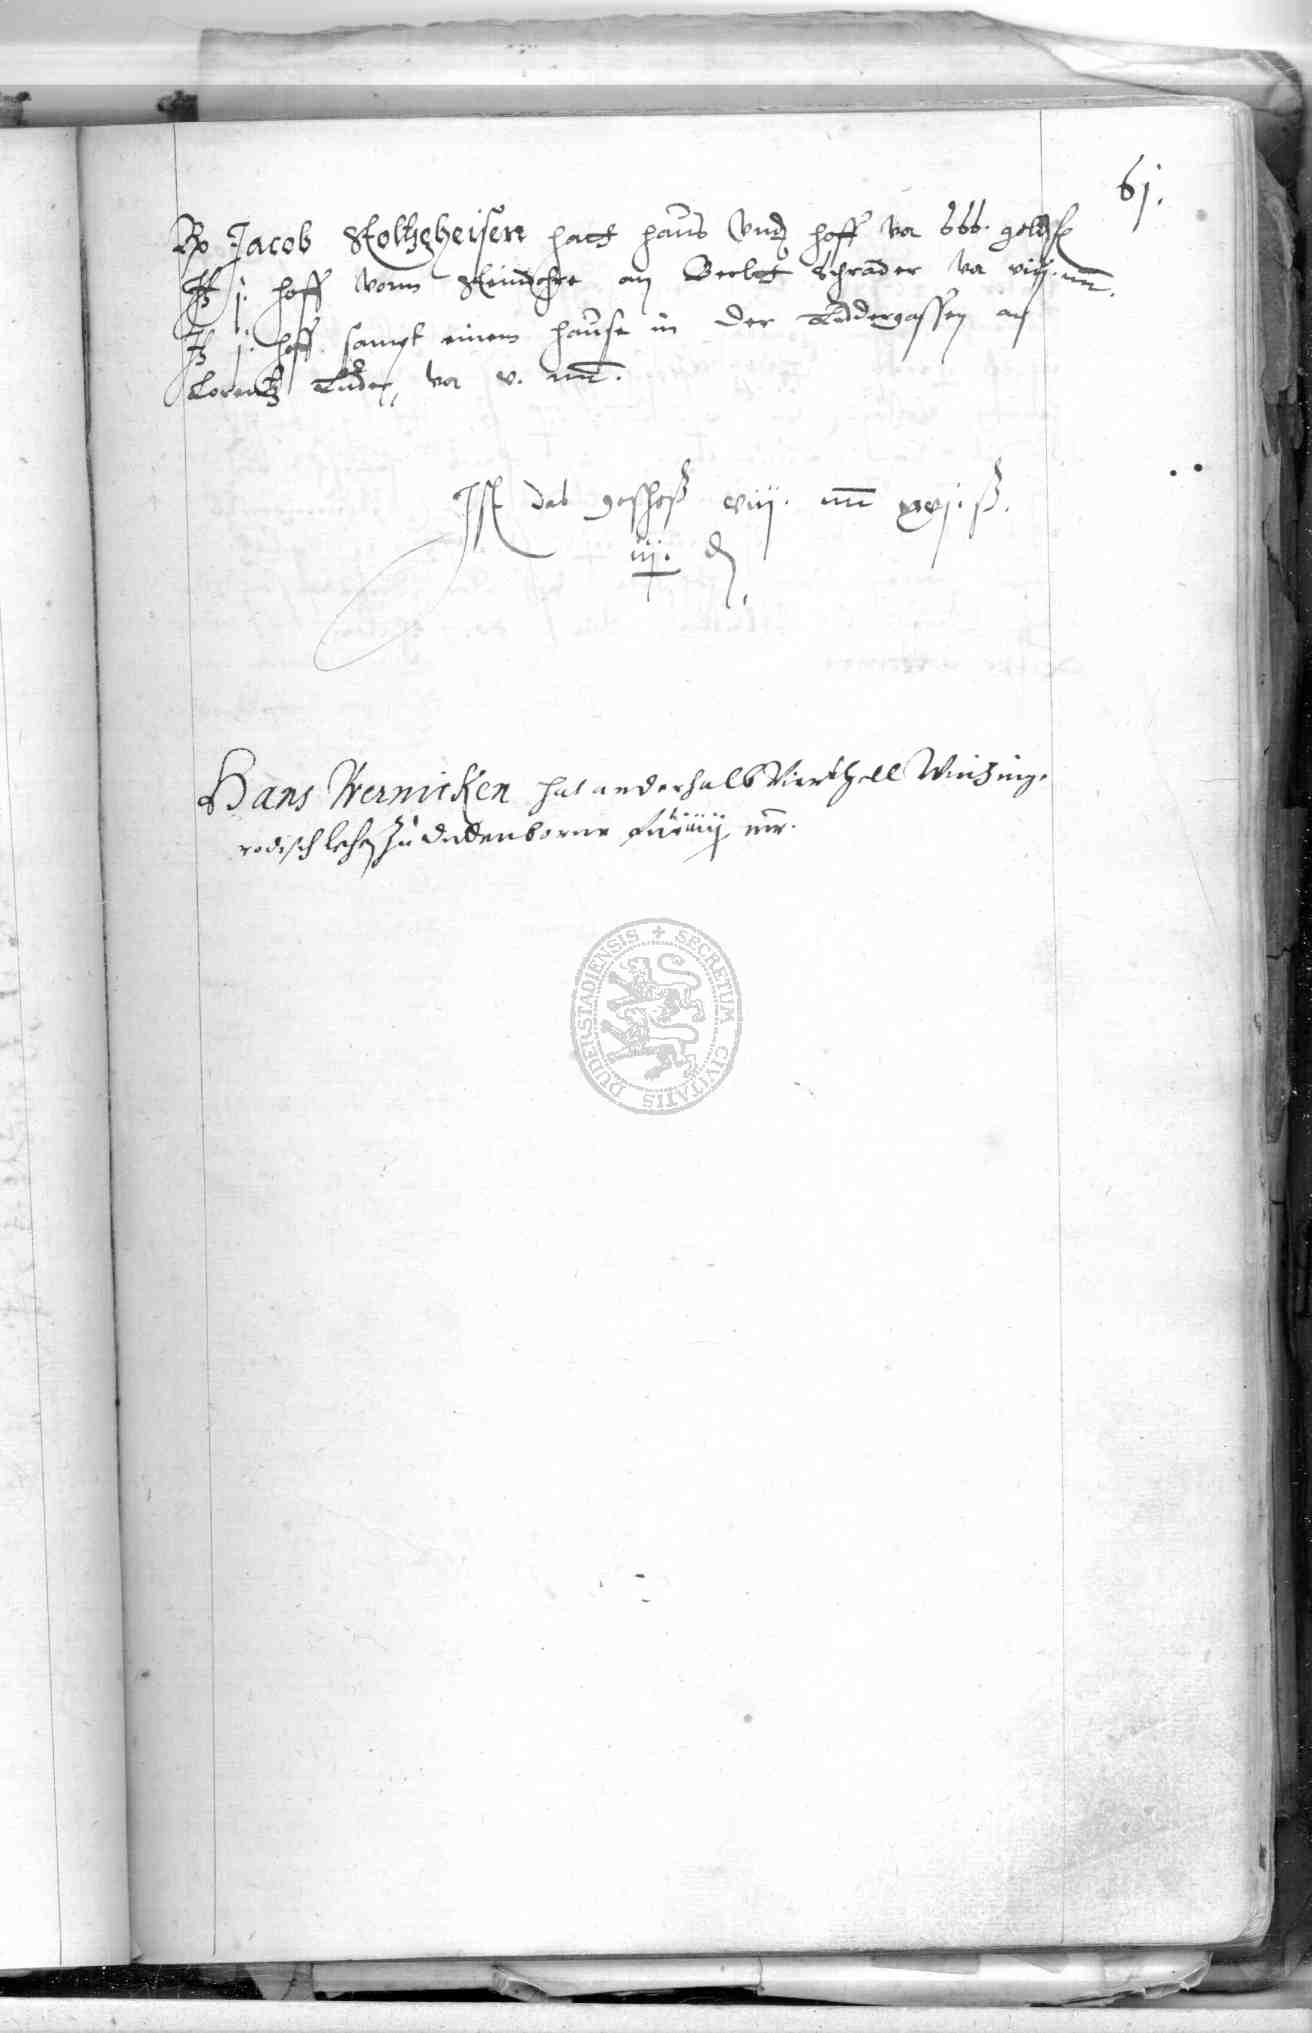 61.
Jacob Stoltzeheisen hatt haus vnd hoff vor 666. goltfl
It j. hoff vorm Steindohre an Berlet Schrader vor viij. mr.
It j. hoff sampt einem hause in der Kuddergassen an
Lorentz Luder, vor v. mr.
Ist das geshoß viij. mr xvj. ß.
iij. d
Hans Wernicken hat anderhalb Virthell Wintzing.
rodisch lehen zu dudenborne mr.
DUDERSTADIENSIS + SECRETUM CIVITATIS